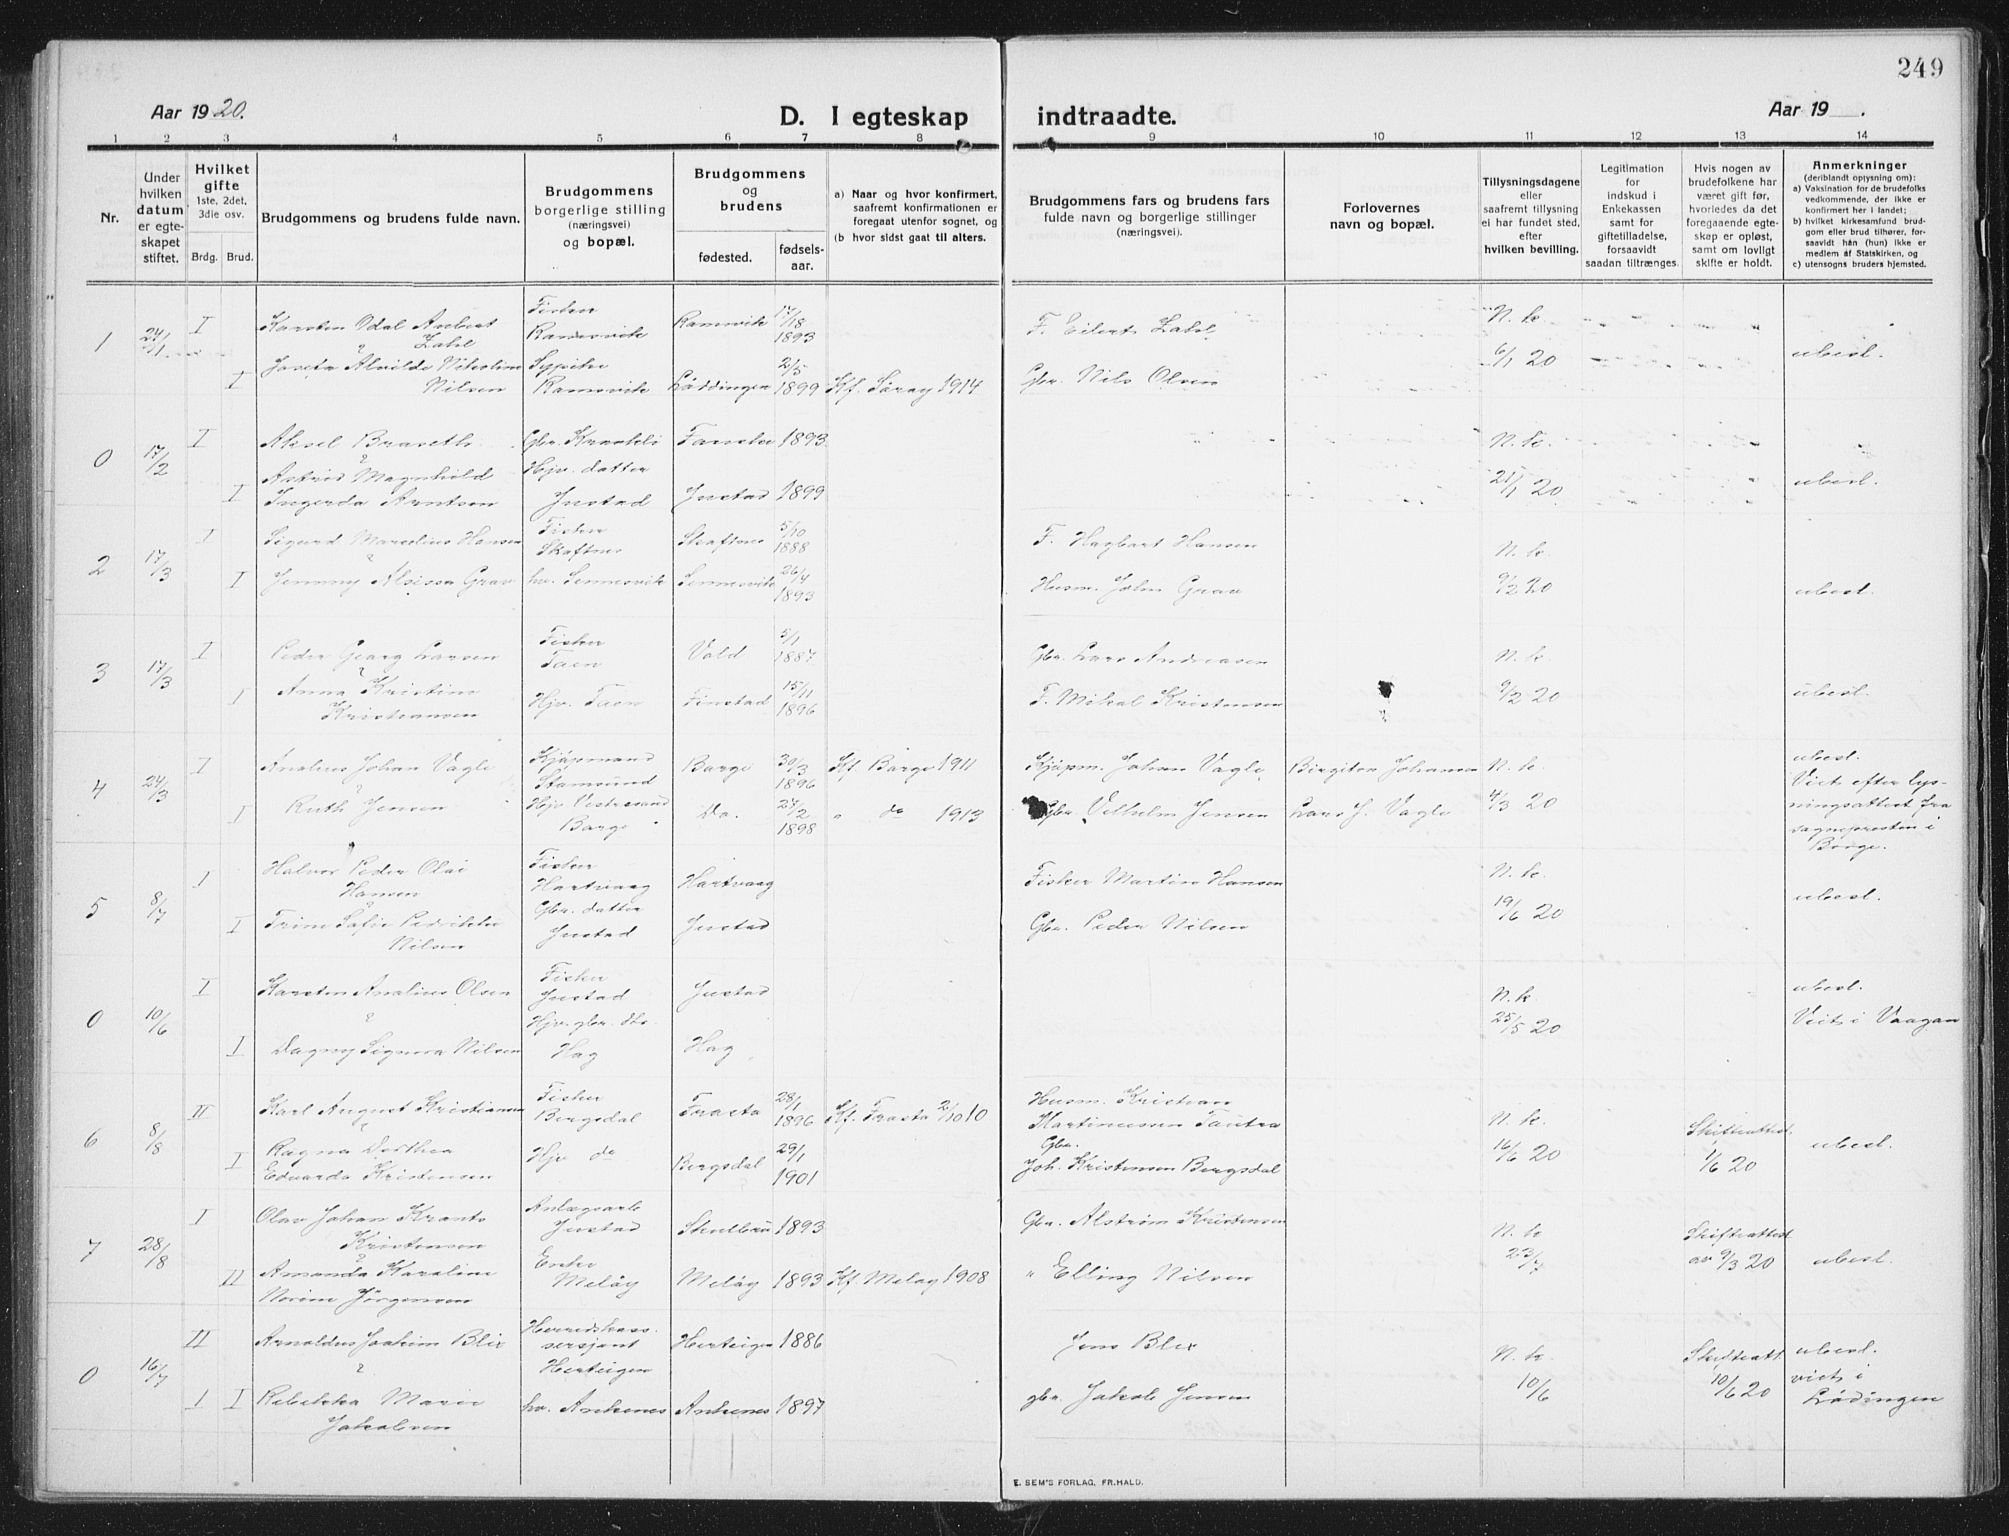 249
Aar 1920.
D. I egteskap indtraadte.
Aar 19 .
1 2 3 4 5 6 7 8 9 10 11 12 13 14
Nr.
Under hvilken datum er egteskapet stiftet.
Hvilket gifte 1ste, 2det, 3die osv.
Brdg. Brud.
Brudgommens og brudens fulde navn.
Brudgommens borgerlige stilling (næringsvei) og bopæl.
Brudgommens og brudens
fødested. fødselsaar.
a) Naar og hvor konfirmert, saafremt konfirmationen er foregaat utenfor sognet, og
(b hvor sidst gaat til alters.
Brudgommens fars og brudens fars fulde navn og borgerlige stillinger (næringsvei).
Forlovernes navn og bopæl.
Tillysningsdagene eller saafremt tillysning ei har fundet sted, efter hvilken bevilling.
Legitimation for indskud i Enkekassen samt for giftetilladelse, forsaavidt saadan tiltrænges.
Hvis nogen av brudefolkene har været gift før, hvorledes da det foregaaende egteskap er opløst, samt om lovligt skifte er holdt.
Anmerkninger (deriblandt oplysning om):
a) Vaksination for de brudefolks vedkommende, der ikke er konfirmert her i landet;
b) hvilket kirkesamfund brudgom eller brud tilhører, forsaavidt han (hun) ikke er medlem af Statskirken, og
c) utensogns bruders hjemsted.
1 24/1 I Karsten Odal Anbert Zahl Fisker Ramsvik Ramsvik 17/18 1893 F. Eilert Zahl N. k.
I Josefa Alvilde Nikoline Nilsen Sypike Ramsvik Løddingen 2/5 1899 Kf. Sørøy 1914 Gbr. Nils Olsen 6/1 20 ubesl.
0 17/2 I Aksel Braseth Gbr. 1893 N. k.
I Astrid Magnhild Ingerda Arntsen Hjv. datter Justad Justad 1899 21/1 20 ubesl.
2 17/3 I Sigurd Marselius Hansen Fisker Skaftnes Skaftnes 5/10 1888 F. Hagbart Hansen N. k.
I Jemmy Grav hv. Sennesvik Sennesvik 26/4 1893 Husm. John Grav 9/2 20 ubesl.
3 17/3 I Peder Georg Larsen Fisker Tuen Vold 5/1 1887 Gbr. Lars Andreasen N. k.
I Anna Kristine Kristiansen Hjv. Tuen Finstad 15/11 1896 F. Mikal Kristensen 9/2 20 ubesl.
4 24/3 I Analius Johan Vagle Kjøpmand Stamsund Borge 30/3 1896 Kf. Borge 1911 Kjøpm. Johan Vagle Johansen N. k. ubesl.
I Ruth Jensen Hjv Vestresand Borge Do. 27/2 1898 " do 1913 Gbr. Vilhelm Jensen Lars J. Vagle 4/3 20 Viet efter lysningsattest fra sognepresten i Borge.
5 8/7 I Halvor Peder Olai Hansen Fisker Hartvaag Hartvaag Fisker Martin Hansen N. k.
I Trine Sofie Nilsen Gbr. datter Justad Justad Gbr. Peder Nilsen 19/6 20 ubesl.
0 10/6 I Karsten Analius Olsen Fisker Justad Justad N. k. ubesl.
I Dagny Signora Nilsen Hjv. gbr. dtr. Hag Hag 25/5 20 Viet i Vaagan
6 8/8 II Karl August Kristiansen Fisker Bergsdal Frosta 28/1 1896 Kf. Frosta 2/10 10 Husm. Kristian Martinussen Tautra N. k. Skifteattest
I Ragna Dorthea Edvarda Kristensen Hjv do Bergsdal 29/1 1901 Gbr. Joh. Kristensen Bergsdal 16/6 20 1/6 20 ubesl.
7 28/8 I Olav Johan Krants Kristensen Anlægsarb. Justad Skulbru 1893 Gbr. Alstrøm Kristensen N. k. Skifteattest
II Amanda Karoline Jørgensen Enke Meløy Meløy 1893 Kf. Meløy 1908 " Elling Nilsen 23/7 av 9/3 20 ubesl.
0 16/7 II Arnoldus Joakim Blix Herredskass. sersjant Herteigen Herteigen 1886 Jens Blix N. k. Skifteatt. ubesl.
I I Rebekka Marie Jakobsen hv. Ankenes Ankenes 1897 gbr. Jakob Jensen 10/6 10/6 20 viet i Lødingen
E. SEM'S FORLAG, FR.HALD.